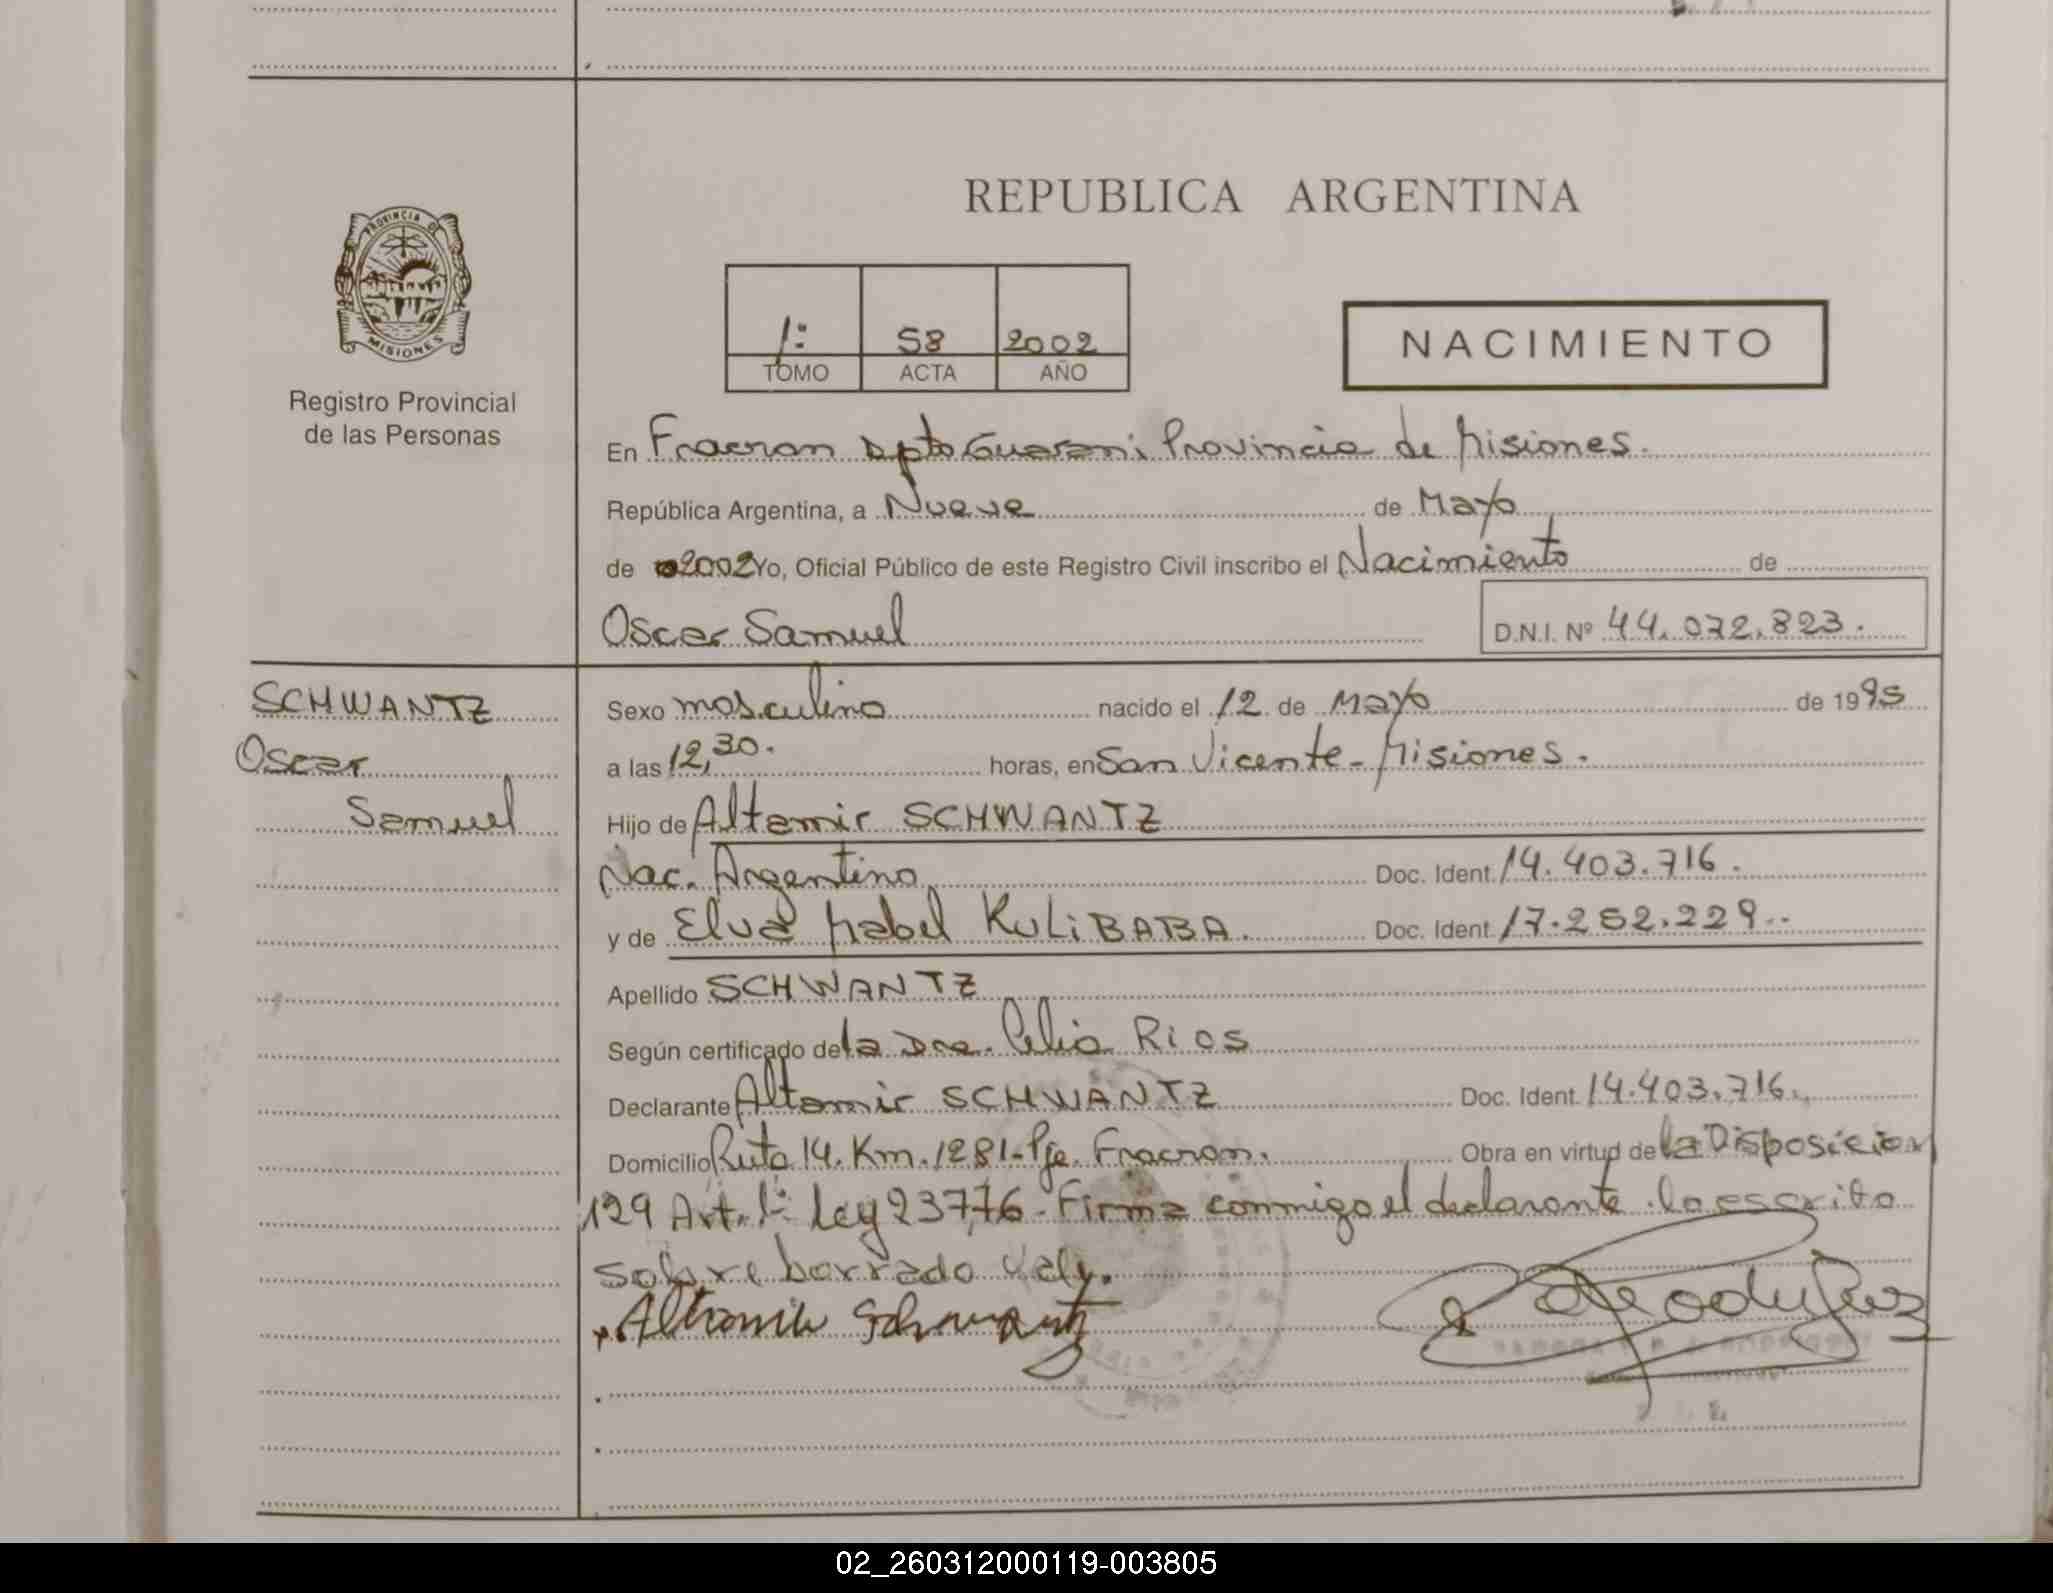 PROVINCIA DE
MISIONES
Registro Provincial
de las Personas
REPUBLICA ARGENTINA
1º 58 2002
TOMO ACTA AÑO
NACIMIENTO
En Fracran Dpto Guarani Provincia de Misiones.
República Argentina, a Nueve de Mayo
de 2002 Yo, Oficial Público de este Registro Civil inscribo el Nacimiento de
Oscar Samuel D.N.I. Nº 44.072.823.
SCHWANTZ
Oscar
Samuel
Sexo masculino nacido el 12 de Mayo de 1995
a las 12,30. horas, en San Vicente - Misiones.
Hijo de Altamir SCHWANTZ
Nac. Argentino Doc. Ident. 14.403.716.
y de Elva Mabel KULiBABA. Doc. Ident. 17.252.229..
Apellido SCHWANTZ
Según certificado de la Dra. Celia Rios
Declarante Altamir SCHWANTZ Doc. Ident. 14.403.716.
Domicilio Ruta 14. Km. 1281 - Pje. Fracran. Obra en virtud de la Disposicion
129 Art. 1º Ley 23776 - Firma conmigo el declarante. lo escrito
sobre borrado Vale.
Altamir Schwantz
02_260312000119-003805